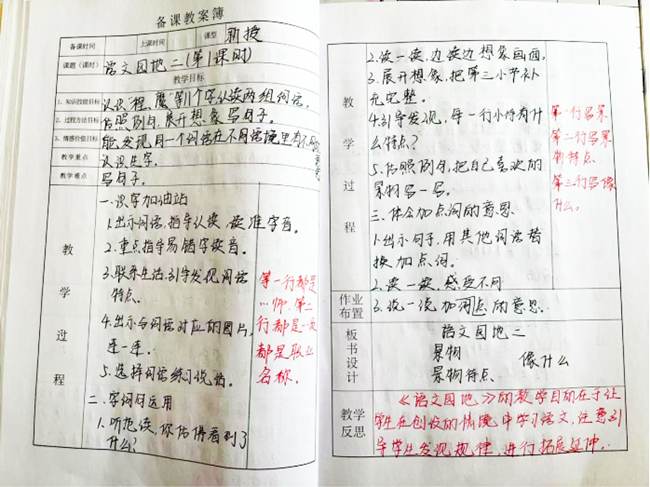 备课教案簿
备课时间 上课时间 课型 新授
课题(课时) 语文园地二(第1课时)
教学目标
1、知识技能目标 认识"橙、魔"等11个字,认读两组词语。
2、过程方法目标 仿照例句,展开想象,写句子。
3、情感价值目标 能发现同一个词语在不同语境里有不同
教学重点 认识生字。
教学难点 写句子。
教学过程
一、识字加油站
1.出示词语,指导认读,读准字音。
2.重点指导易错字读音。
3.联系生活,引导发现词语
特点.
4.出示与词语对应的图片,
连一连.
5.选择词语练习说话。
二、字词句运用
1.听范读,你仿佛看到了
什么?
第一行都是
…师.第二
行都是一
都是职业
名称.
教学过程
2.读一读,边读边想象画面,
3.展开想象,把第三小节补
充完整。
4.引导发现,每一行小诗有什
么特点?
5.仿照例句,把自己喜欢的
景物写一写。
三、体会加点词的意思
1.出示句子,用其他词语替
换加点词.
2.读一读,感受不同
3.说一说加词点的意思.
第一行写景
第二行写景
物特点
第三行写像
什么。
作业布置
板书设计
语文园地二
景物
景物特点 像什么
教学反思
《语文园地》的教学目的在于让
学生在创设的情境中学习语文,注意引
导学生发现规律,进行拓展延伸.